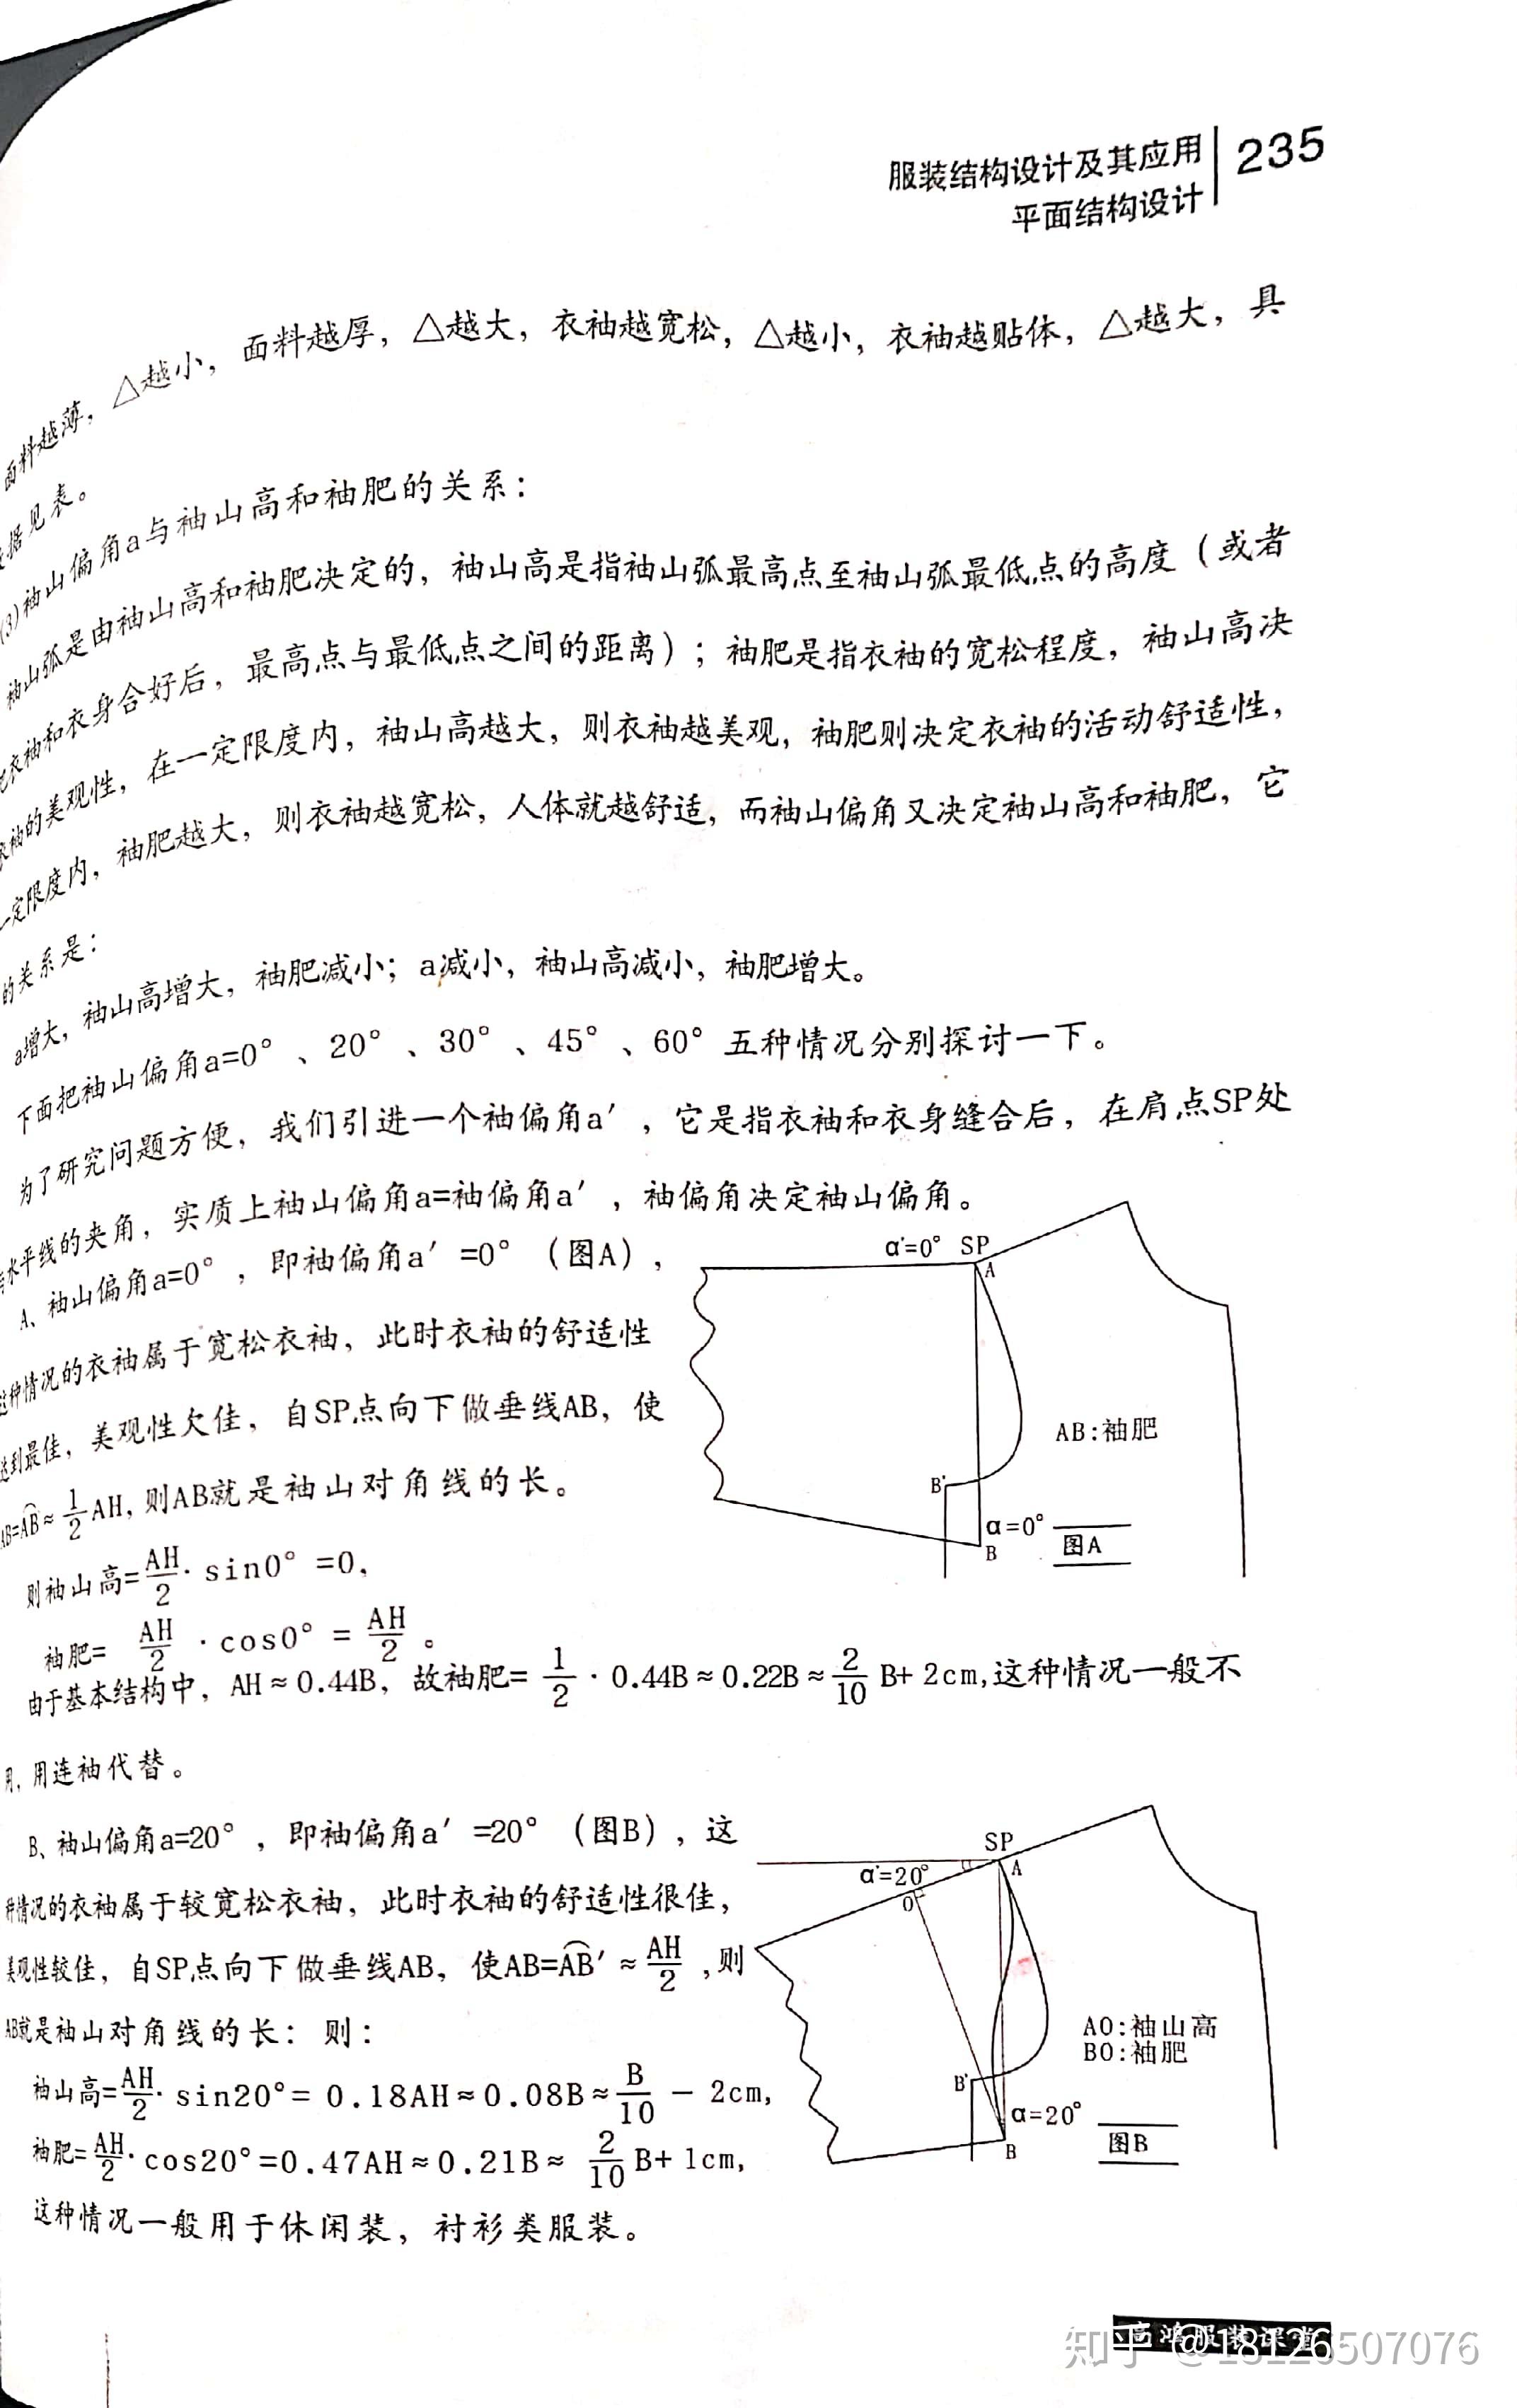 服装结构设计及其应用
平面结构设计
235
面料越薄，△越小，面料越厚，△越大，衣袖越宽松，△越小，衣袖越贴体，△越大，具
据见表。
(3)袖山偏角a与袖山高和袖肥的关系：
袖山弧是由袖山高和袖肥决定的，袖山高是指袖山弧最高点至袖山弧最低点的高度（或者
衣袖和衣身合好后，最高点与最低点之间的距离）；袖肥是指衣袖的宽松程度，袖山高决
衣袖的美观性，在一定限度内，袖山高越大，则衣袖越美观，袖肥则决定衣袖的活动舒适性，
一定限度内，袖肥越大，则衣袖越宽松，人体就越舒适，而袖山偏角又决定袖山高和袖肥，它
的关系是：
a增大，袖山高增大，袖肥减小；a减小，袖山高减小，袖肥增大。
下面把袖山偏角a=0°、20°、30°、45°、60°五种情况分别探讨一下。
为了研究问题方便，我们引进一个袖偏角a′，它是指衣袖和衣身缝合后，在肩点SP处
与水平线的夹角，实质上袖山偏角a=袖偏角a′，袖偏角决定袖山偏角。
A、袖山偏角a=0°，即袖偏角a′=0°（图A），
这种情况的衣袖属于宽松衣袖，此时衣袖的舒适性
达到最佳，美观性欠佳，自SP点向下做垂线AB，使
AB=A͡B≈1/2AH，则AB就是袖山对角线的长。
则袖山高=AH/2·sin0°=0，
袖肥=AH/2·cos0°=AH/2。
α′=0° SP
A
AB:袖肥
B′
α=0°
B
图A
由于基本结构中，AH≈0.44B，故袖肥=1/2·0.44B≈0.22B≈2/10B+2cm,这种情况一般不
用，用连袖代替。
B、袖山偏角a=20°，即袖偏角a′=20°（图B），这
种情况的衣袖属于较宽松衣袖，此时衣袖的舒适性很佳，
美观性较佳，自SP点向下做垂线AB，使AB=A͡B′≈AH/2,则
AB就是袖山对角线的长：则：
袖山高=AH/2·sin20°=0.18AH≈0.08B≈B/10-2cm,
袖肥=AH/2·cos20°=0.47AH≈0.21B≈2/10B+1cm,
这种情况一般用于休闲装，衬衫类服装。
SP
α′=20°
A
O
AO:袖山高
BO:袖肥
B′
α=20°
B
图B
高鸿服装课堂
知乎 @18126507076